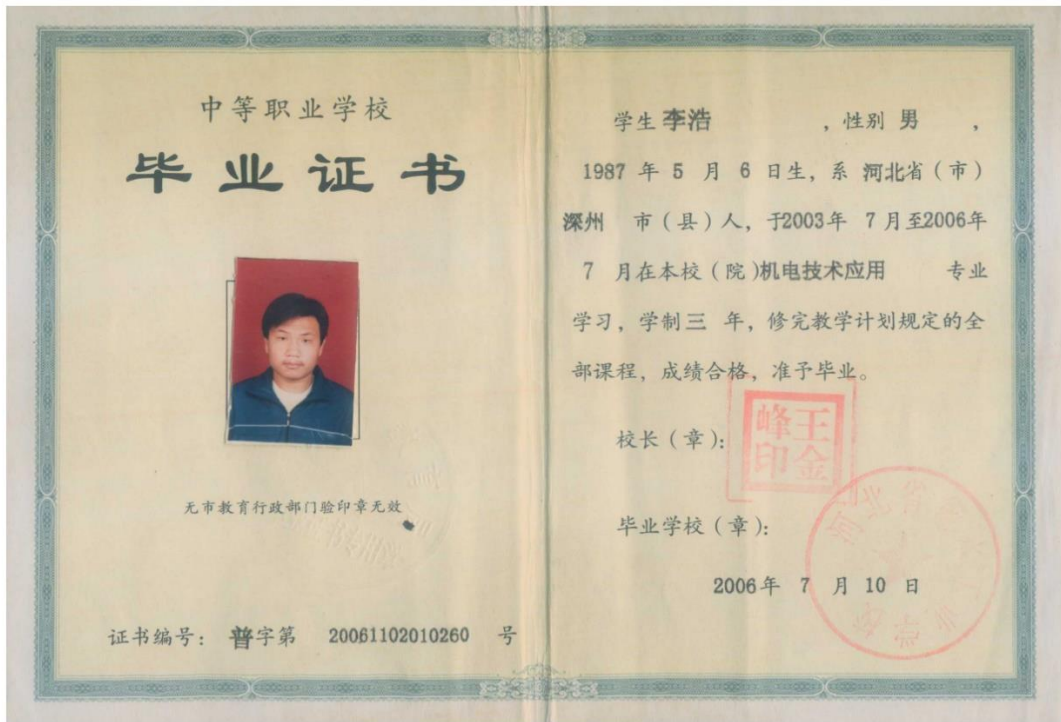 中等职业学校
毕业证书
无市教育行政部门验印章无效
证书编号：普字第 20061102010260 号
学生 李浩 ，性别 男 ，
1987 年 5 月 6 日生，系 河北省（市）
深州 市（县）人，于2003年 7 月至2006年
7 月在本校（院）机电技术应用 专业
学习，学制三 年，修完教学计划规定的全
部课程，成绩合格，准予毕业。
校长（章）：
王金峰印
毕业学校（章）：
2006年 7 月 10 日
河北省